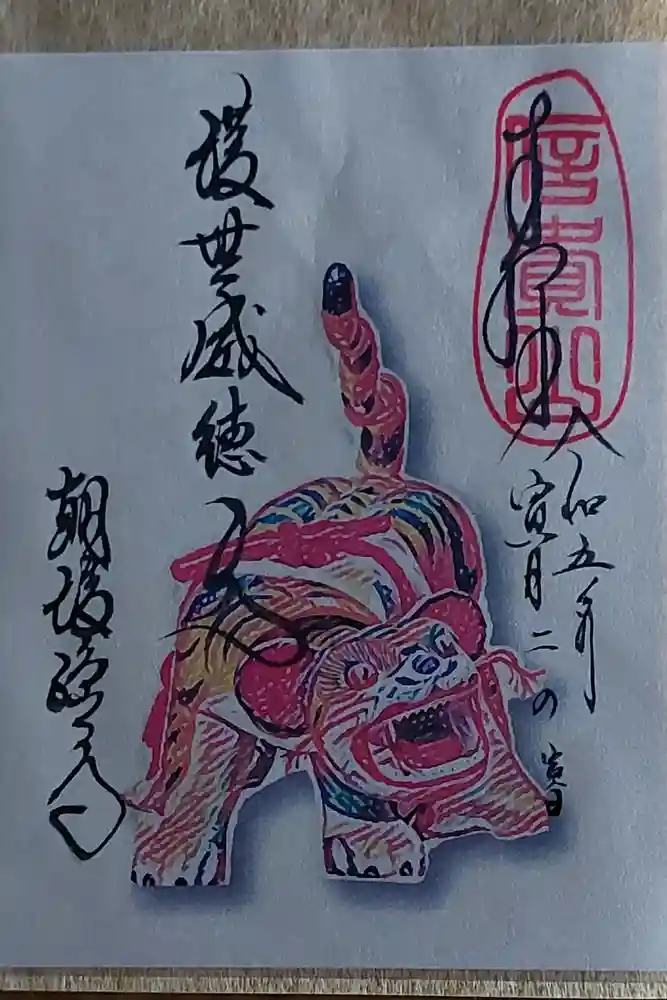 奉拝
信貴山
令和五年
寅月二の寅日
護世威徳天
朝護孫子寺